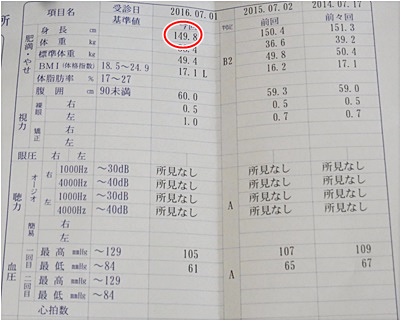 所
項目名 受診日 基準値 2016.07.01 判定 2015.07.02 2014.07.17
前回 前々回
肥満・やせ 身長 cm 149.8 B2 150.4 151.3
体重 kg 36.6 39.2
標準体重 kg 49.4 49.8 50.4
BMI(体格指数) 18.5~24.9 17.1 L 16.2 17.1
体脂肪率% 17~27
腹囲 cm 90未満 60.0 59.3 59.0
視力 裸眼 右 0.5 0.5 0.5
左 1.0 0.7 0.7
矯正 右
左
眼圧 右 左
聴力 オージオ 右 1000Hz ~30dB 所見なし A 所見なし 所見なし
4000Hz ~40dB 所見なし 所見なし 所見なし
左 1000Hz ~30dB 所見なし 所見なし 所見なし
4000Hz ~40dB 所見なし 所見なし 所見なし
簡易 右
左
血圧 一回目 最高 mmHg ~129 105 A 107 109
最低 mmHg ~84 61 65 67
二回目 最高 mmHg ~129
最低 mmHg ~84
心拍数